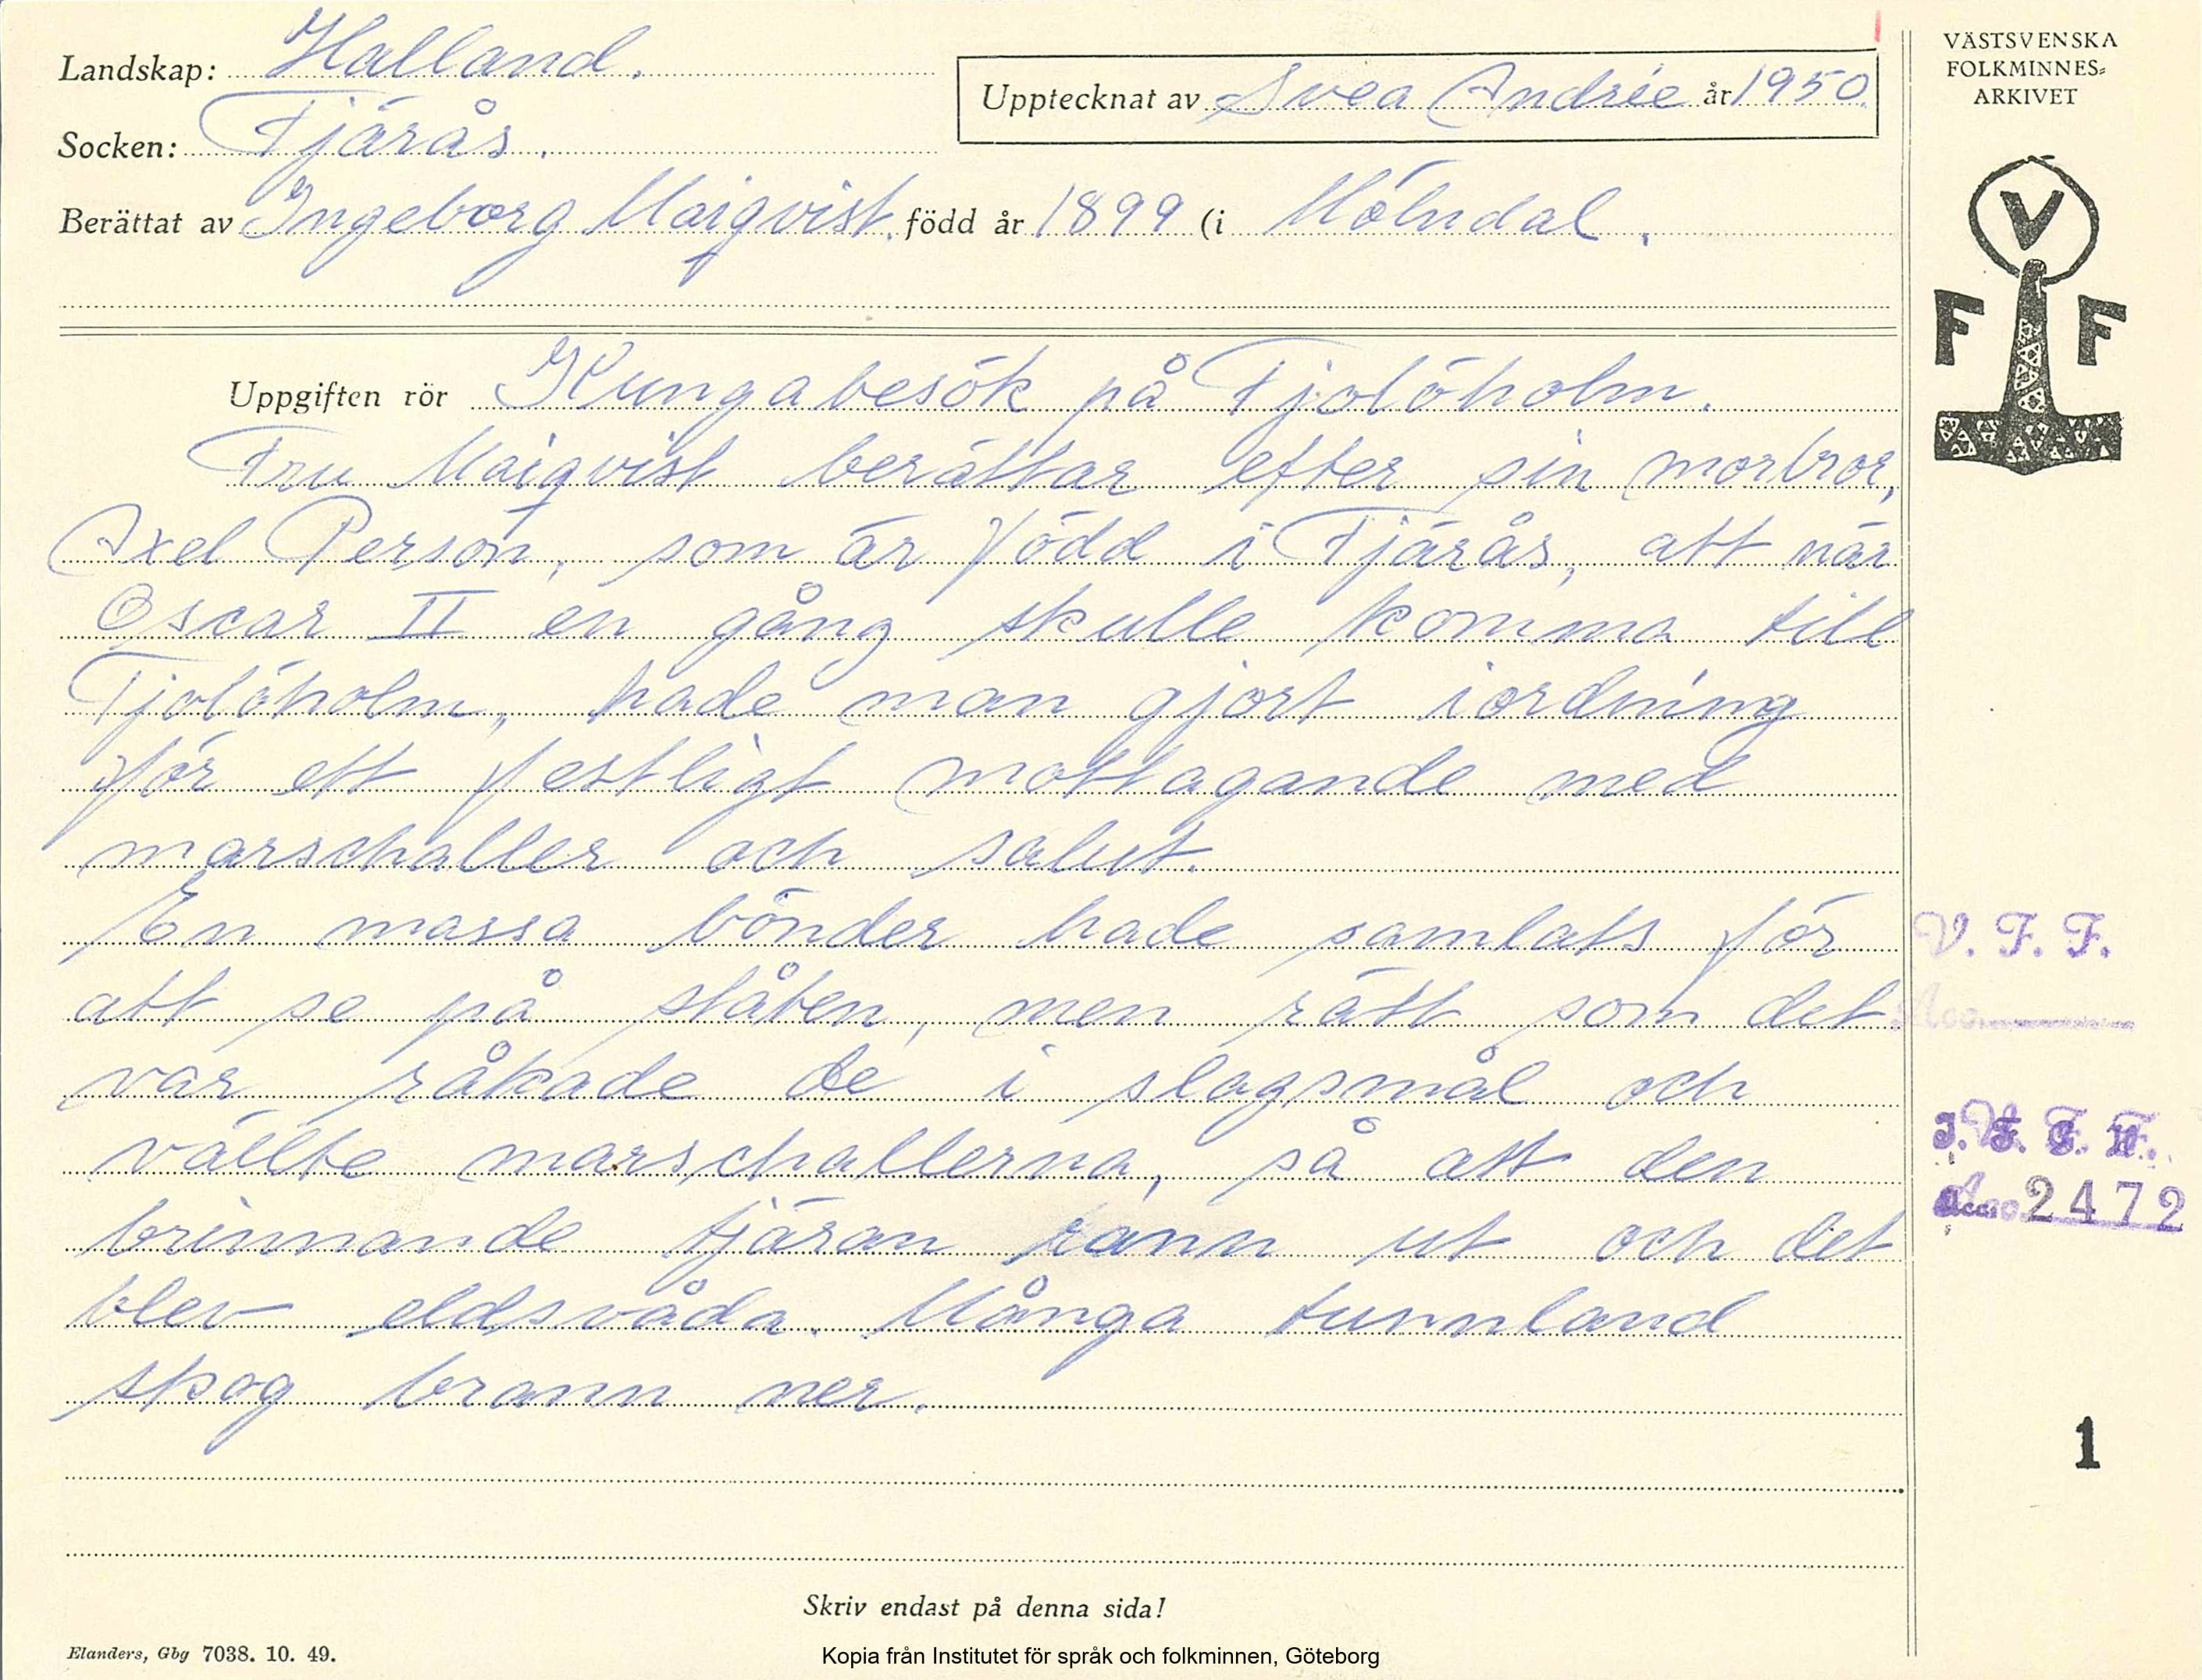 Landskap: Halland.
Upptecknat av Svea Andrée år 1950.
VÄSTSVENSKA
FOLKMINNES=
ARKIVET
Socken: Tjärås.
Berättat av Ingeborg Maiqvist, född år 1899 (i Mölndal.
V
F F
Uppgiften rör Kungabesök på Tjolöholm.
Fru Maiqvist berättar efter sin morbror,
Axel Person, som är född i Fjärås, att när
Oscar II en gång skulle komma till
Tjolöholm, hade man gjort iordning
för ett festligt mottagande med
marschaller och salut.
En massa bönder hade samlats för
att se på ståten, men rätt som det
var råkade de i slagsmål och
vällte marschallerna, så att den
brinnande tjäran rann ut och det
blev eldsvåda. Många tunnland
skog brann ner.
V. F. F.
Acc.
Acc. 2472
1
Skriv endast på denna sida!
Elanders, Gbg 7038. 10. 49.
Kopia från Institutet för språk och folkminnen, Göteborg